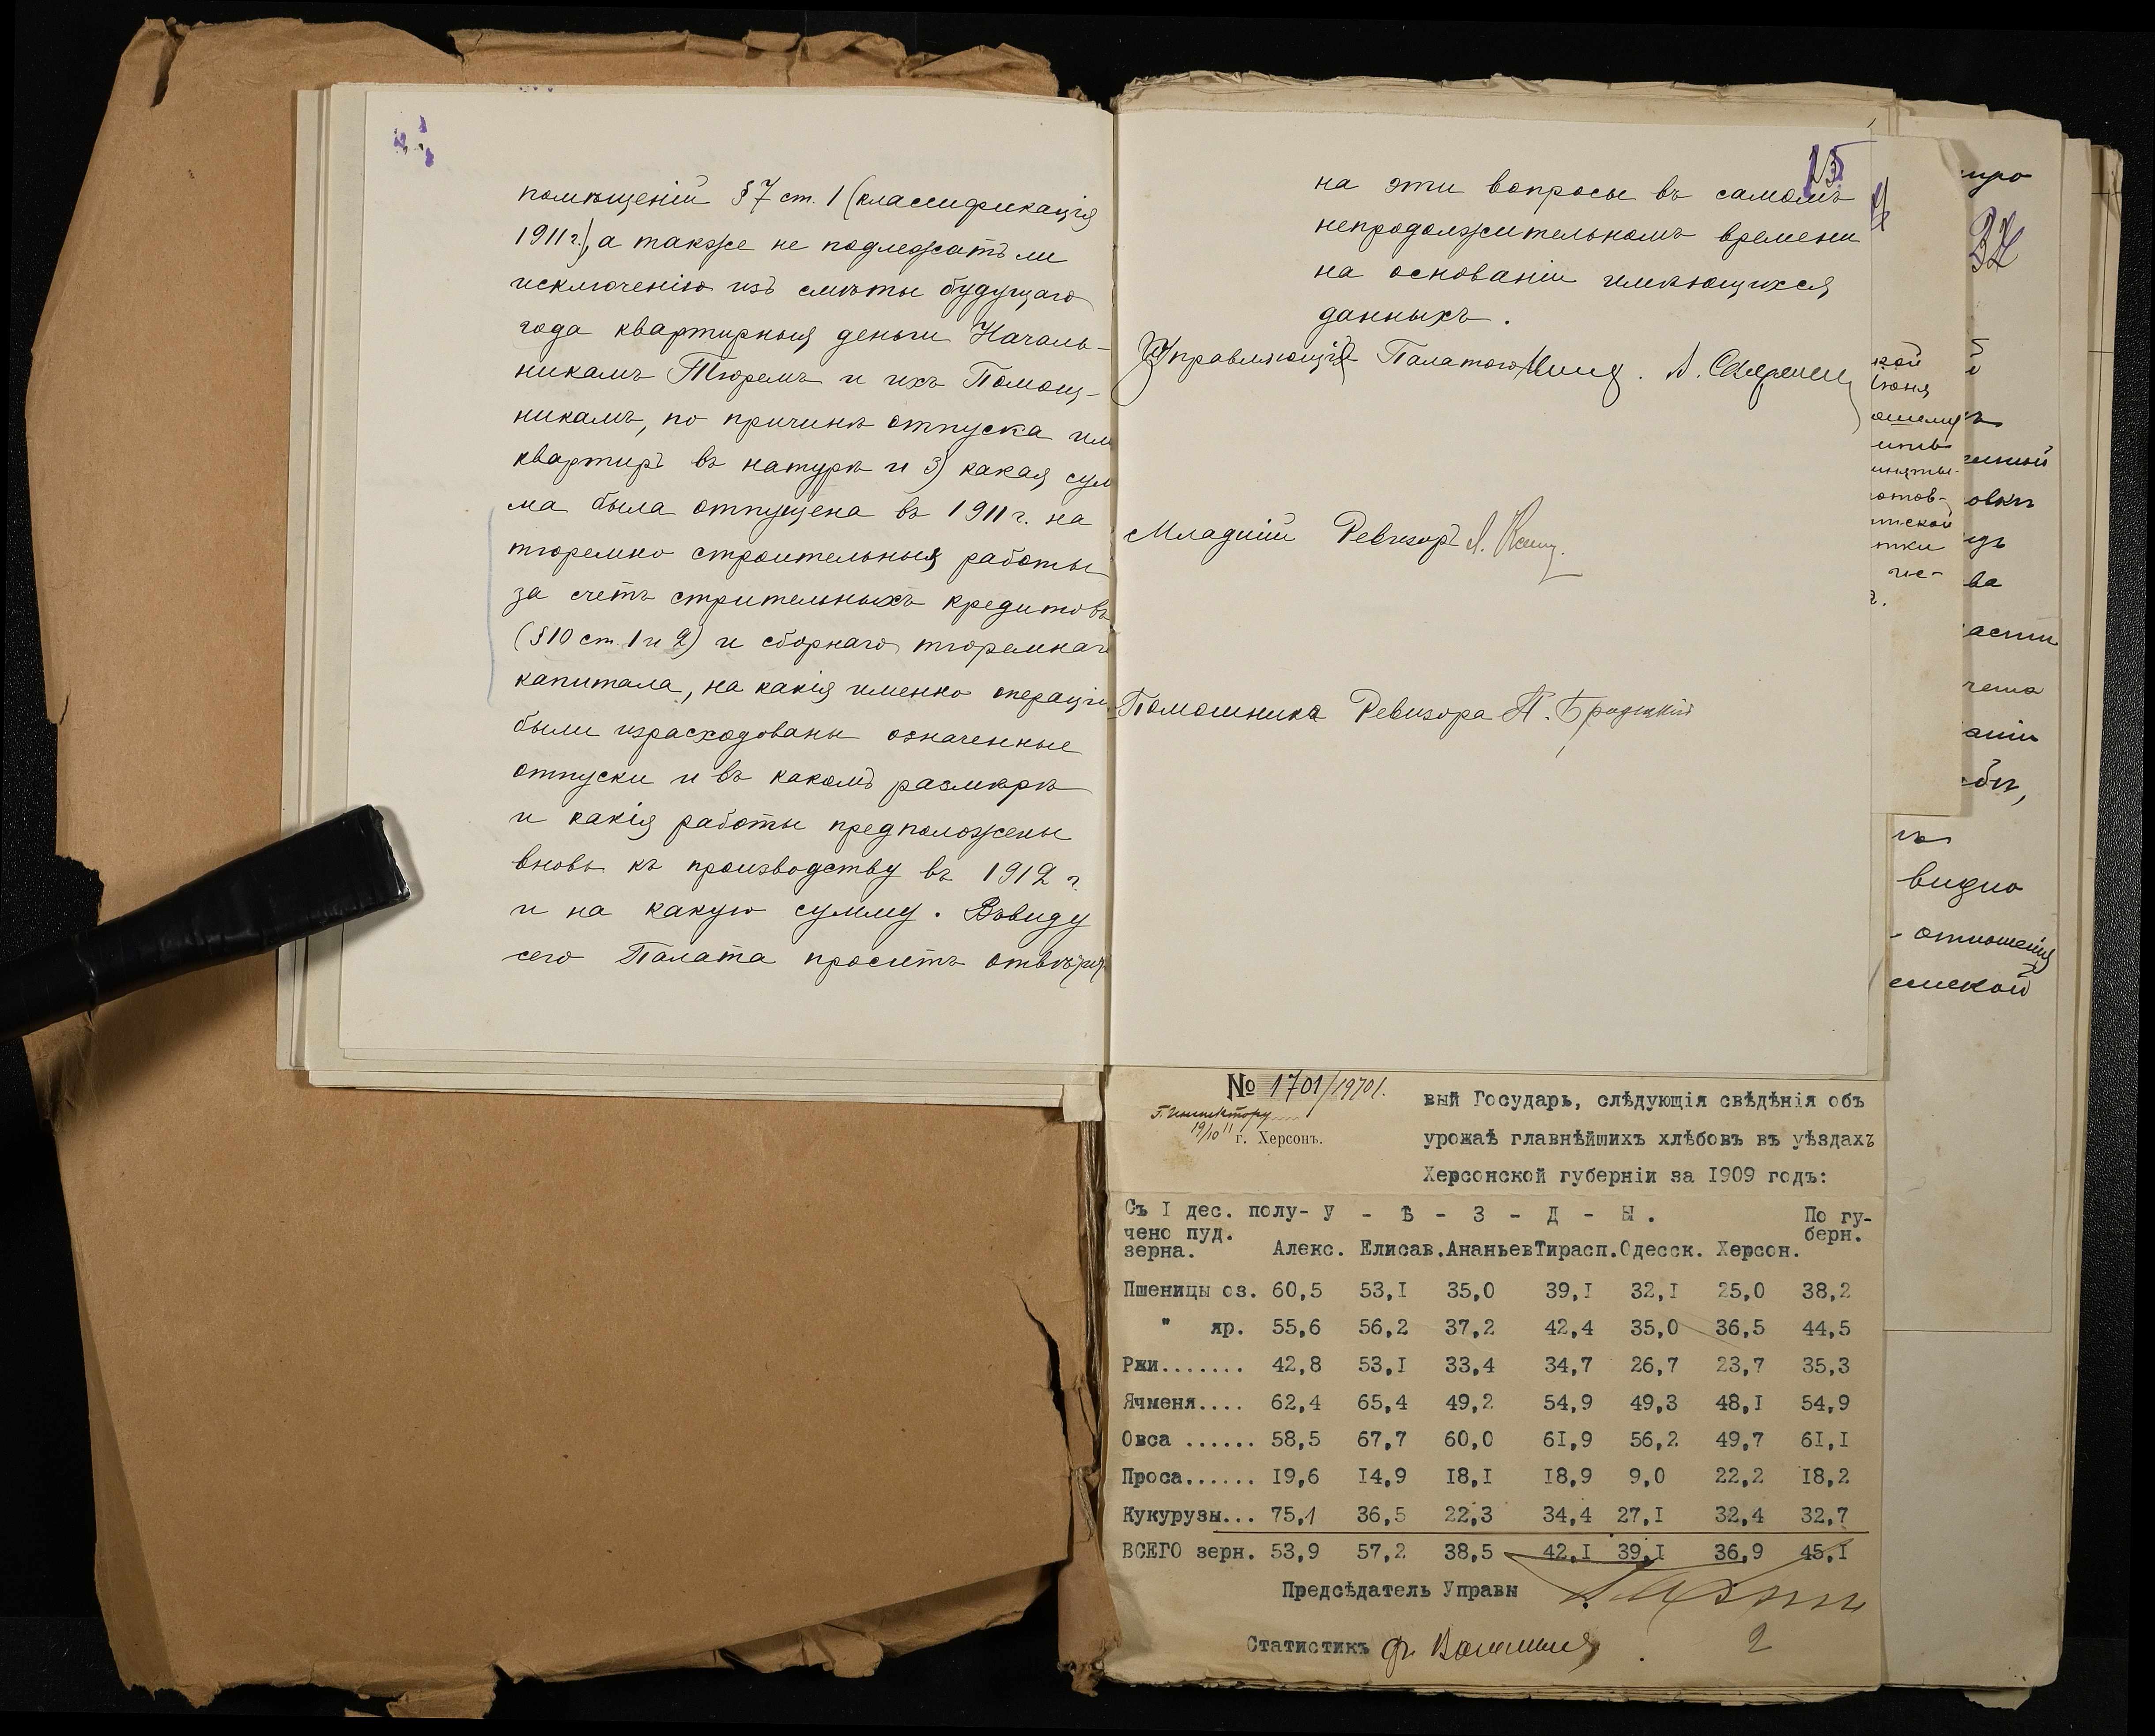 помѣщеній §7 ст. 1 (классификація
1911 г.), а также не подлежатъ ли
исключенію изъ смѣты будущаго
года квартирныя деньги Началь-
никамъ Тюремъ и ихъ Помощ-
никамъ, по причинѣ отпуска им
квартиръ въ натурѣ и 3) какая сум
ма была отпущена въ 1911 г. на
тюремно строительныя работы
за счетъ стрительныхъ кредитовъ
(§10 ст. 1 и 2) и сборнаго тюремнаго
капитала, на какія именно операціи
были израсходованы означенные
отпуски и въ какомъ размѣрѣ
и какія работы предположены
вновь къ производству въ 1912 г.
и на какую сумму. Въвиду
сего Палата проситъ отвѣтить
на эти вопросы въ самомъ
непродолжительномъ времени
на основаніи имѣющихся
данныхъ.
Управляющій Палатою
Младшій Ревизоръ
Помошника Ревизора П. Бродецкій
32
кой
іюня
отов-
тки
овки
ва
видно
- отношенія
№ 1701/19701.
Г. Инспектору
19/10 11 г. Херсонъ.
вый Государь, слѣдующія свѣдѣнія объ
урожаѣ главнѣйшихъ хлѣбовъ въ уѣздахъ
Херсонской губерніи за 1909 годъ:
Съ I дес. полу- У - Ѣ - З - Д - Ы . По гу-
чено пуд. берн.
зерна. Алекс. Елисав. Ананьев Тирасп. Одесск. Херсон.
Пшеницы оз. 60,5 53,I 35,0 39,I 32,I 25,0 38,2
" яр. 55,6 56,2 37,2 42,4 35,0 36,5 44,5
Ржи....... 42,8 53,I 33,4 34,7 26,7 23,7 35,3
Ячменя.... 62,4 65,4 49,2 54,9 49,3 48,I 54,9
Овса ...... 58,5 67,7 60,0 6I,9 56,2 49,7 6I,I
Проса...... I9,6 I4,9 I8,I I8,9 9,0 22,2 I8,2
Кукурузы... 75,1 36,5 22,3 34,4 27,I 32,4 32,7
ВСЕГО зерн. 53,9 57,2 38,5 42,I 39,I 36,9 45,I
Предсѣдатель Управы
Статистикъ
2